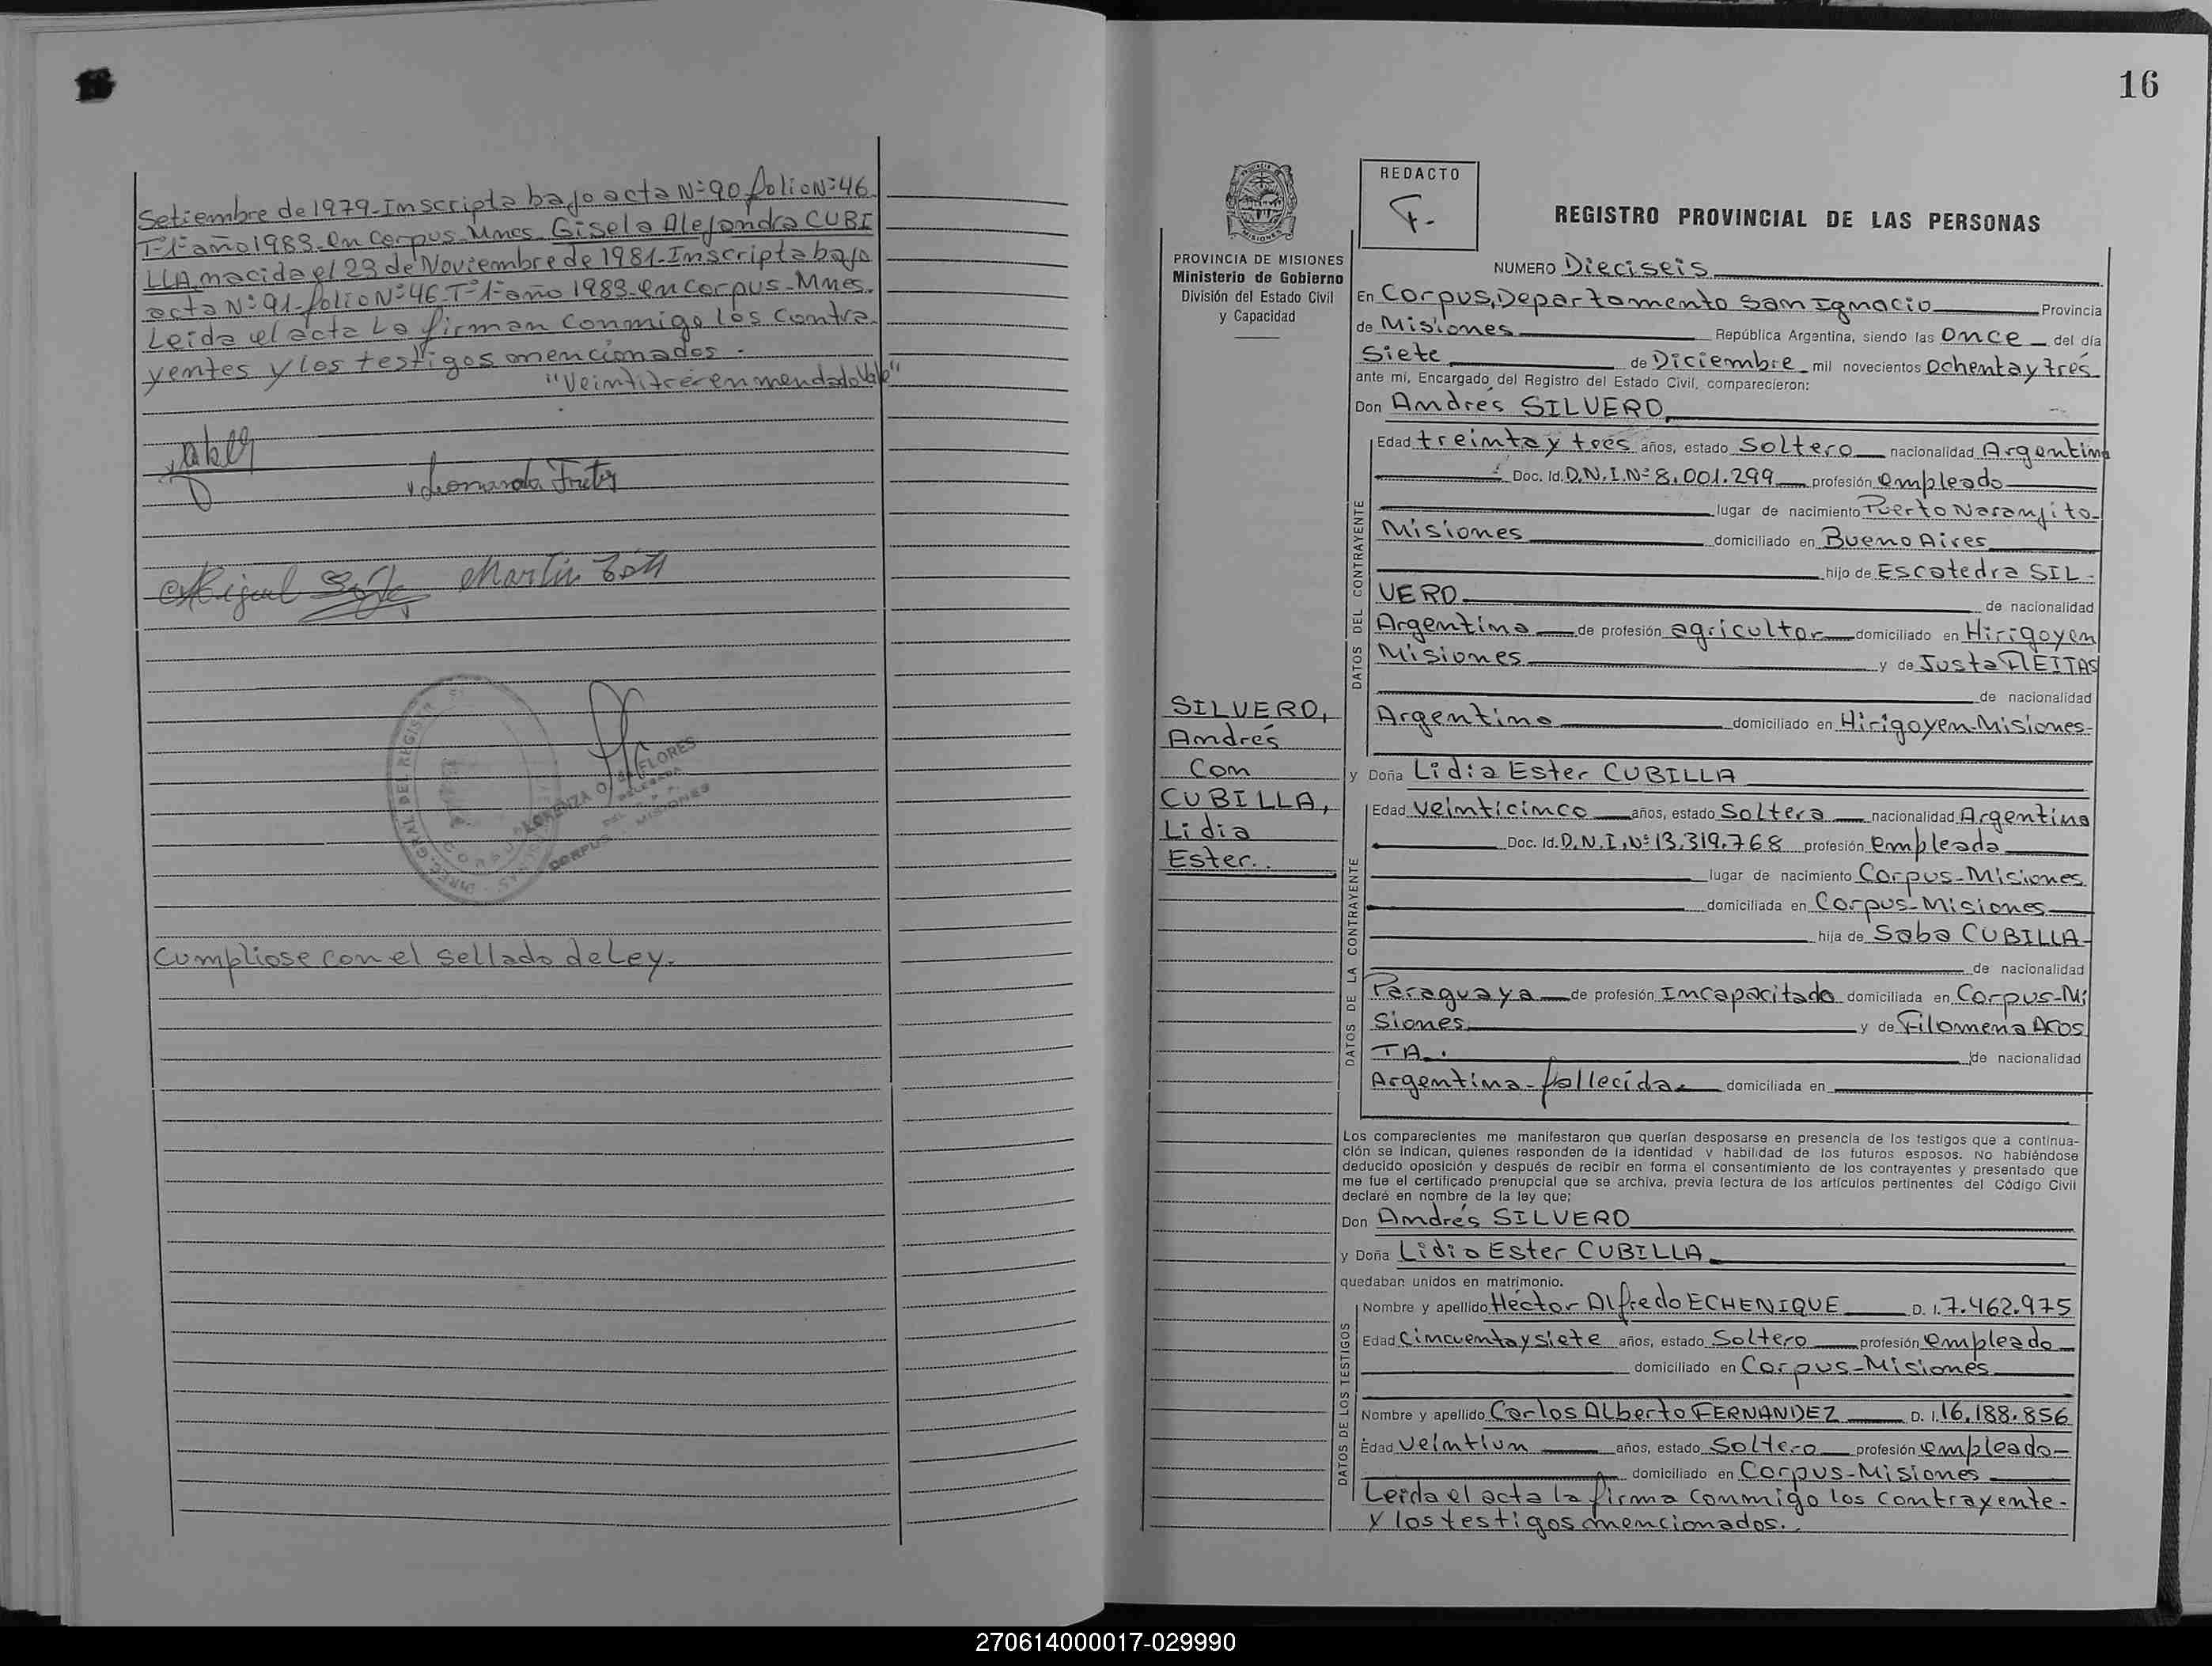 Setiembre de 1979-Inscripta bajo acta Nº90 folio Nº46
Tº1º año 1983-en Corpus-Mnes. Gisela Alejandra CUBI
LLA, nacida el 23 de Noviembre de 1981-Inscripta bajo
acta Nº91-folio Nº46-Tº1º año 1983-en Corpus-Mnes.
Leida el acta la firman conmigo los contra
yentes y los testigos mencionados.-
"Veintitres enmendado Vale"
Miguel
Martin
LORENZA FLORES
DELEGADA
CORPUS - MISIONES
Cumpliose con el sellado de Ley.-
16
PROVINCIA DE MISIONES
Ministerio de Gobierno
División del Estado Civil
y Capacidad
REDACTO
F.-
REGISTRO PROVINCIAL DE LAS PERSONAS
NUMERO Dieciseis
En Corpus, Departamento San Ignacio Provincia
de Misiones República Argentina, siendo las once del día
Siete de Diciembre mil novecientos ochenta y tres
ante mi, Encargado del Registro del Estado Civil, comparecieron:
Don Andrés SILVERO
DATOS DEL CONTRAYENTE
Edad treinta y tres años, estado Soltero nacionalidad Argentina
Doc. Id. D.N.I.Nº 8.001.299 profesión empleado
lugar de nacimiento Puerto Naranjito-
Misiones domiciliado en Bueno Aires
hijo de Escatedra SIL-
VERO de nacionalidad
Argentina de profesión agricultor domiciliado en Hirigoyen
Misiones y de Justa FLEITAS
de nacionalidad
Argentina domiciliado en Hirigoyen-Misiones-
SILVERO,
Andrés
Con
CUBILLA,
Lidia
Ester..
y Doña Lidia Ester CUBILLA
DATOS DE LA CONTRAYENTE
Edad veinticinco años, estado Soltera nacionalidad Argentina
Doc. Id. D.N.I.Nº 13.319.768 profesión empleada
lugar de nacimiento Corpus-Misiones
domiciliada en Corpus-Misiones
hija de Saba CUBILLA
de nacionalidad
Paraguaya de profesión Incapacitado domiciliada en Corpus-Mi
siones y de Filomena ACOS
TA. de nacionalidad
Argentina-fallecida domiciliada en
Los comparecientes me manifestaron que querían desposarse en presencia de los testigos que a continua-
ción se indican, quienes responden de la identidad y habilidad de los futuros esposos. No habiéndose
deducido oposición y después de recibir en forma el consentimiento de los contrayentes y presentado que
me fue el certificado prenupcial que se archiva, previa lectura de los artículos pertinentes del Código Civil
declaré en nombre de la ley que:
Don Andrés SILVERO
y Doña Lidia Ester CUBILLA
quedaban unidos en matrimonio.
DATOS DE LOS TESTIGOS
Nombre y apellido Héctor Alfredo ECHENIQUE D. I. 7.462.975
Edad Cincuenta y siete años, estado Soltero profesión empleado
domiciliado en Corpus-Misiones
Nombre y apellido Carlos Alberto FERNANDEZ D. I. 16.188.856
Edad Veintiun años, estado Soltero profesión empleado
domiciliado en Corpus-Misiones
Leida el acta la firma conmigo los contrayente-
y los testigos mencionados.
270614000017-029990